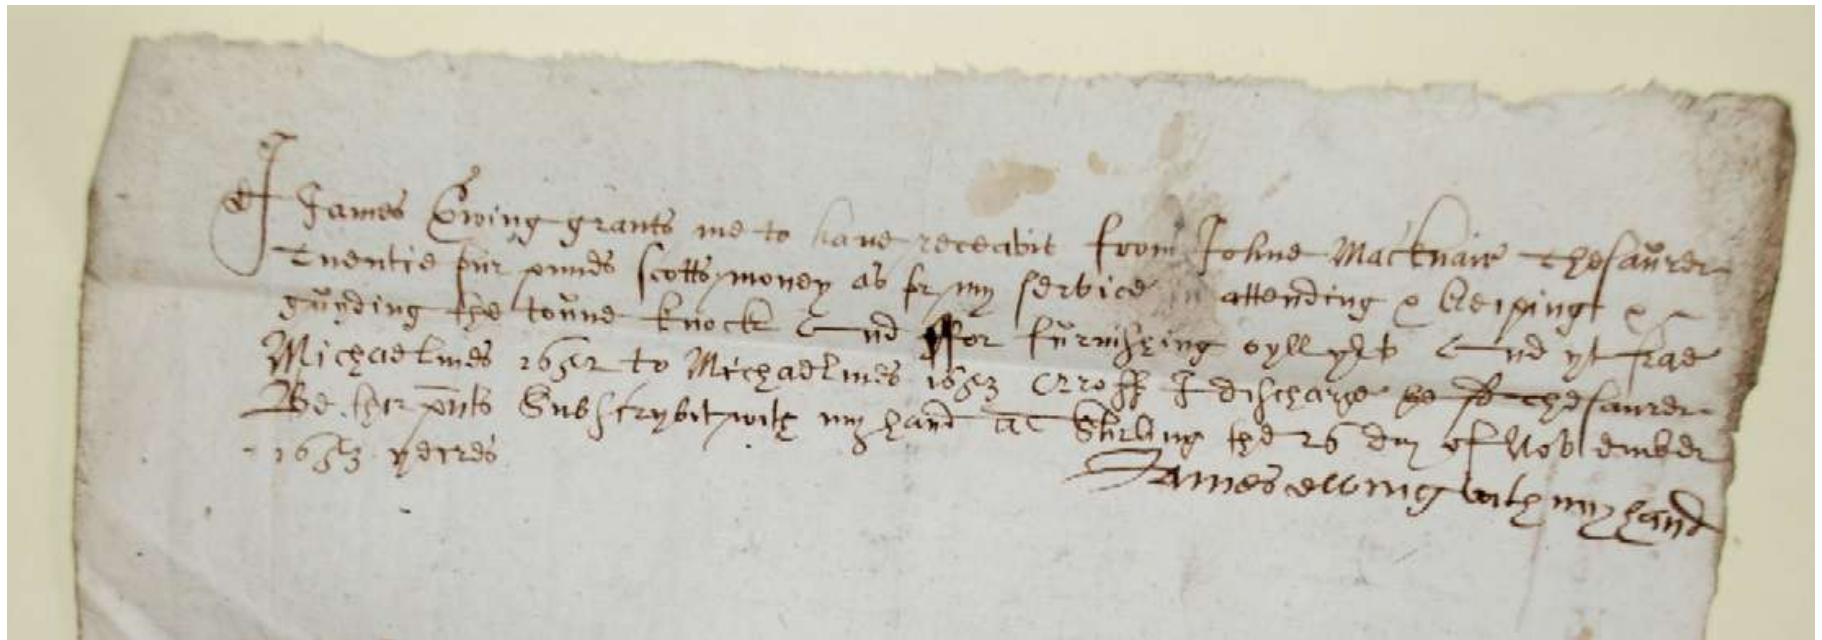 I James Ewing grants me to have receavit from Johne Macknair thesaurer
Twentie punds scotts money as for my service in attending & keiping &
guyding the toune knock And for furnishing oyll yrto And yt frae
Michaelmes 1652 to Michaelmes 1653 Qroff I discharge ye sd thesaurer
Be ther pnts Subscrybit with my hand at Stirling the 26 day of November
1653 yeeres
James ewing with my hand